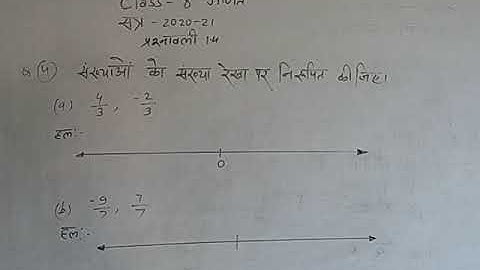 Class - 8 गणित
सत्र - 2020-21
प्रश्नावली 1.4
Q (4) संख्याओं को संख्या रेखा पर निरूपित कीजिए।
(a) 4/3 , -2/3
हलः-
0
(b) -9/7 , 7/7
हलः-